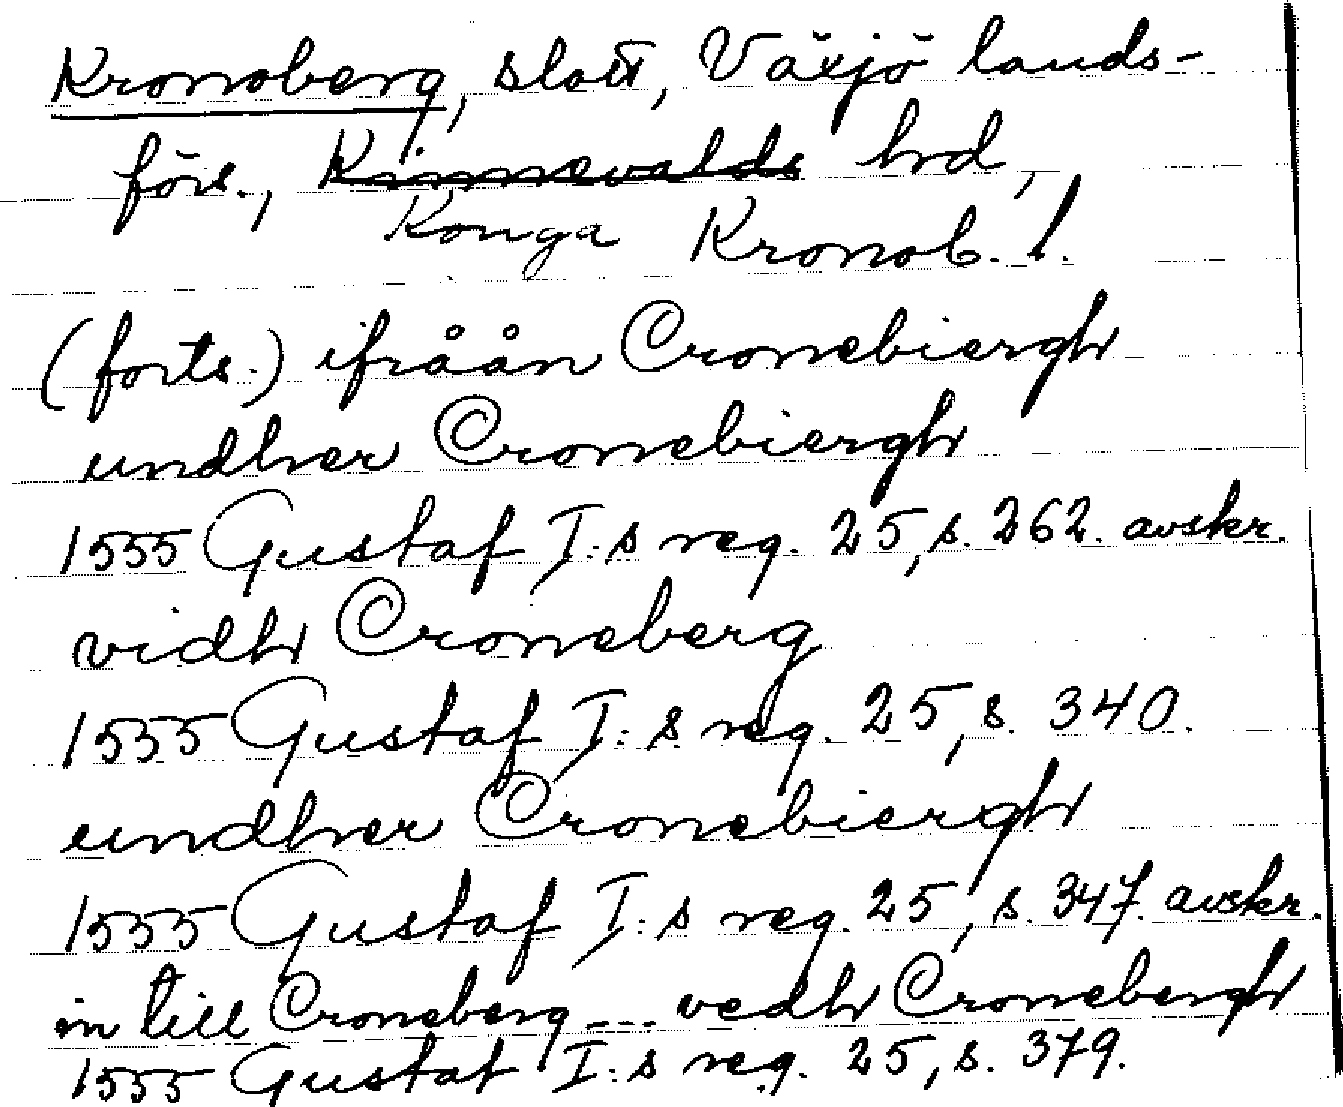 Kronoberg, slott, Växjö lands-
förs., Kinnevalds hd,
Konga Kronob. l.
(forts.) ifråån Cronebiergh
undher Cronebiergh
1555 Gustaf I:s reg. 25, s. 262. avskr.
vidh Croneberg
1555 Gustaf I:s reg. 25, s. 340.
undher Cronebiergh
1555 Gustaf I:s reg. 25, s. 347. avskr.
in till Croneberg --- vedh Cronebergh
1555 Gustaf I:s reg. 25, s. 379.